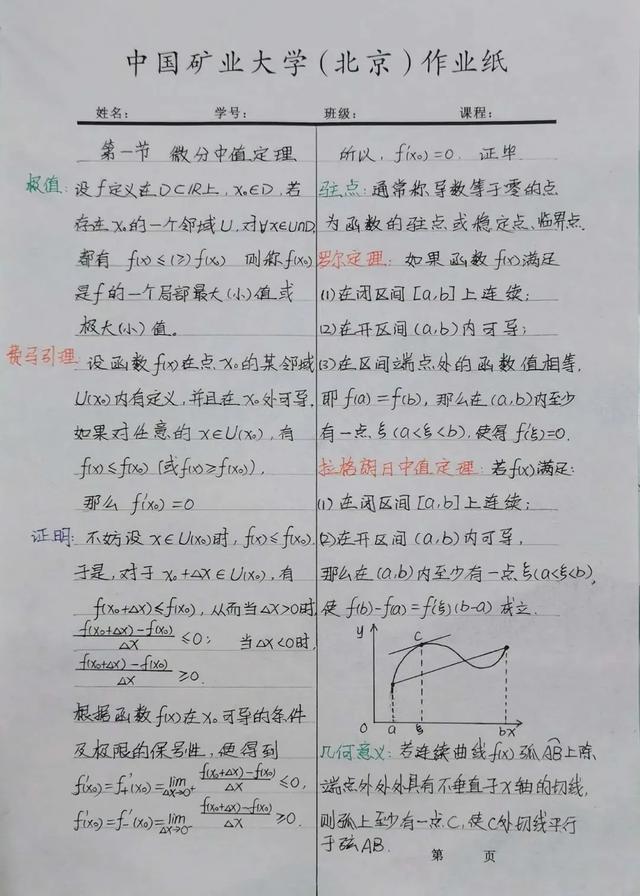 中国矿业大学(北京)作业纸
姓名: 学号: 班级: 课程:
第一节 微分中值定理
极值: 设f定义在D⊂IR上, x₀∈D, 若
存在x₀的一个邻域U, 对∀x∈U∩D
都有 f(x)≤(≥)f(x₀) 则称f(x₀)
是f的一个局部最大(小)值或
极大(小)值。
费马引理: 设函数f(x)在点x₀的某邻域
U(x₀)内有定义, 并且在x₀处可导,
如果对任意的x∈U(x₀), 有
f(x)≤f(x₀) (或f(x)≥f(x₀)),
那么 f'(x₀)=0
证明: 不妨设x∈U(x₀)时, f(x)≤f(x₀),
于是, 对于 x₀+△x∈U(x₀), 有
f(x₀+△x)≤f(x₀), 从而当△x>0时,
f(x₀+△x)-f(x₀)/△x ≤0; 当△x<0时,
f(x₀+△x)-f(x₀)/△x ≥0.
根据函数f(x)在x₀可导的条件
及极限的保号性, 便得到
f'(x₀)=f'₊(x₀)=lim △x→0⁺ f(x₀+△x)-f(x₀)/△x ≤0,
f'(x₀)=f'₋(x₀)=lim △x→0⁻ f(x₀+△x)-f(x₀)/△x ≥0.
所以, f'(x₀)=0. 证毕
驻点: 通常称导数等于零的点
为函数的驻点或稳定点、临界点.
罗尔定理: 如果函数f(x)满足
(1)在闭区间[a,b]上连续;
(2)在开区间(a,b)内可导;
(3)在区间端点处的函数值相等,
即f(a)=f(b), 那么在(a,b)内至少
有一点ξ(a<ξ<b), 使得f'(ξ)=0.
拉格朗日中值定理: 若f(x)满足:
(1) 在闭区间[a,b]上连续;
(2)在开区间(a,b)内可导,
那么在(a,b)内至少有一点ξ(a<ξ<b),
使 f(b)-f(a)=f'(ξ)(b-a) 成立.
y
C
0 a ξ b x
几何意义: 若连续曲线f(x)弧AB上除
端点外处处具有不垂直于x轴的切线,
则弧上至少有一点C, 使C处切线平行
于弦AB.
第 页